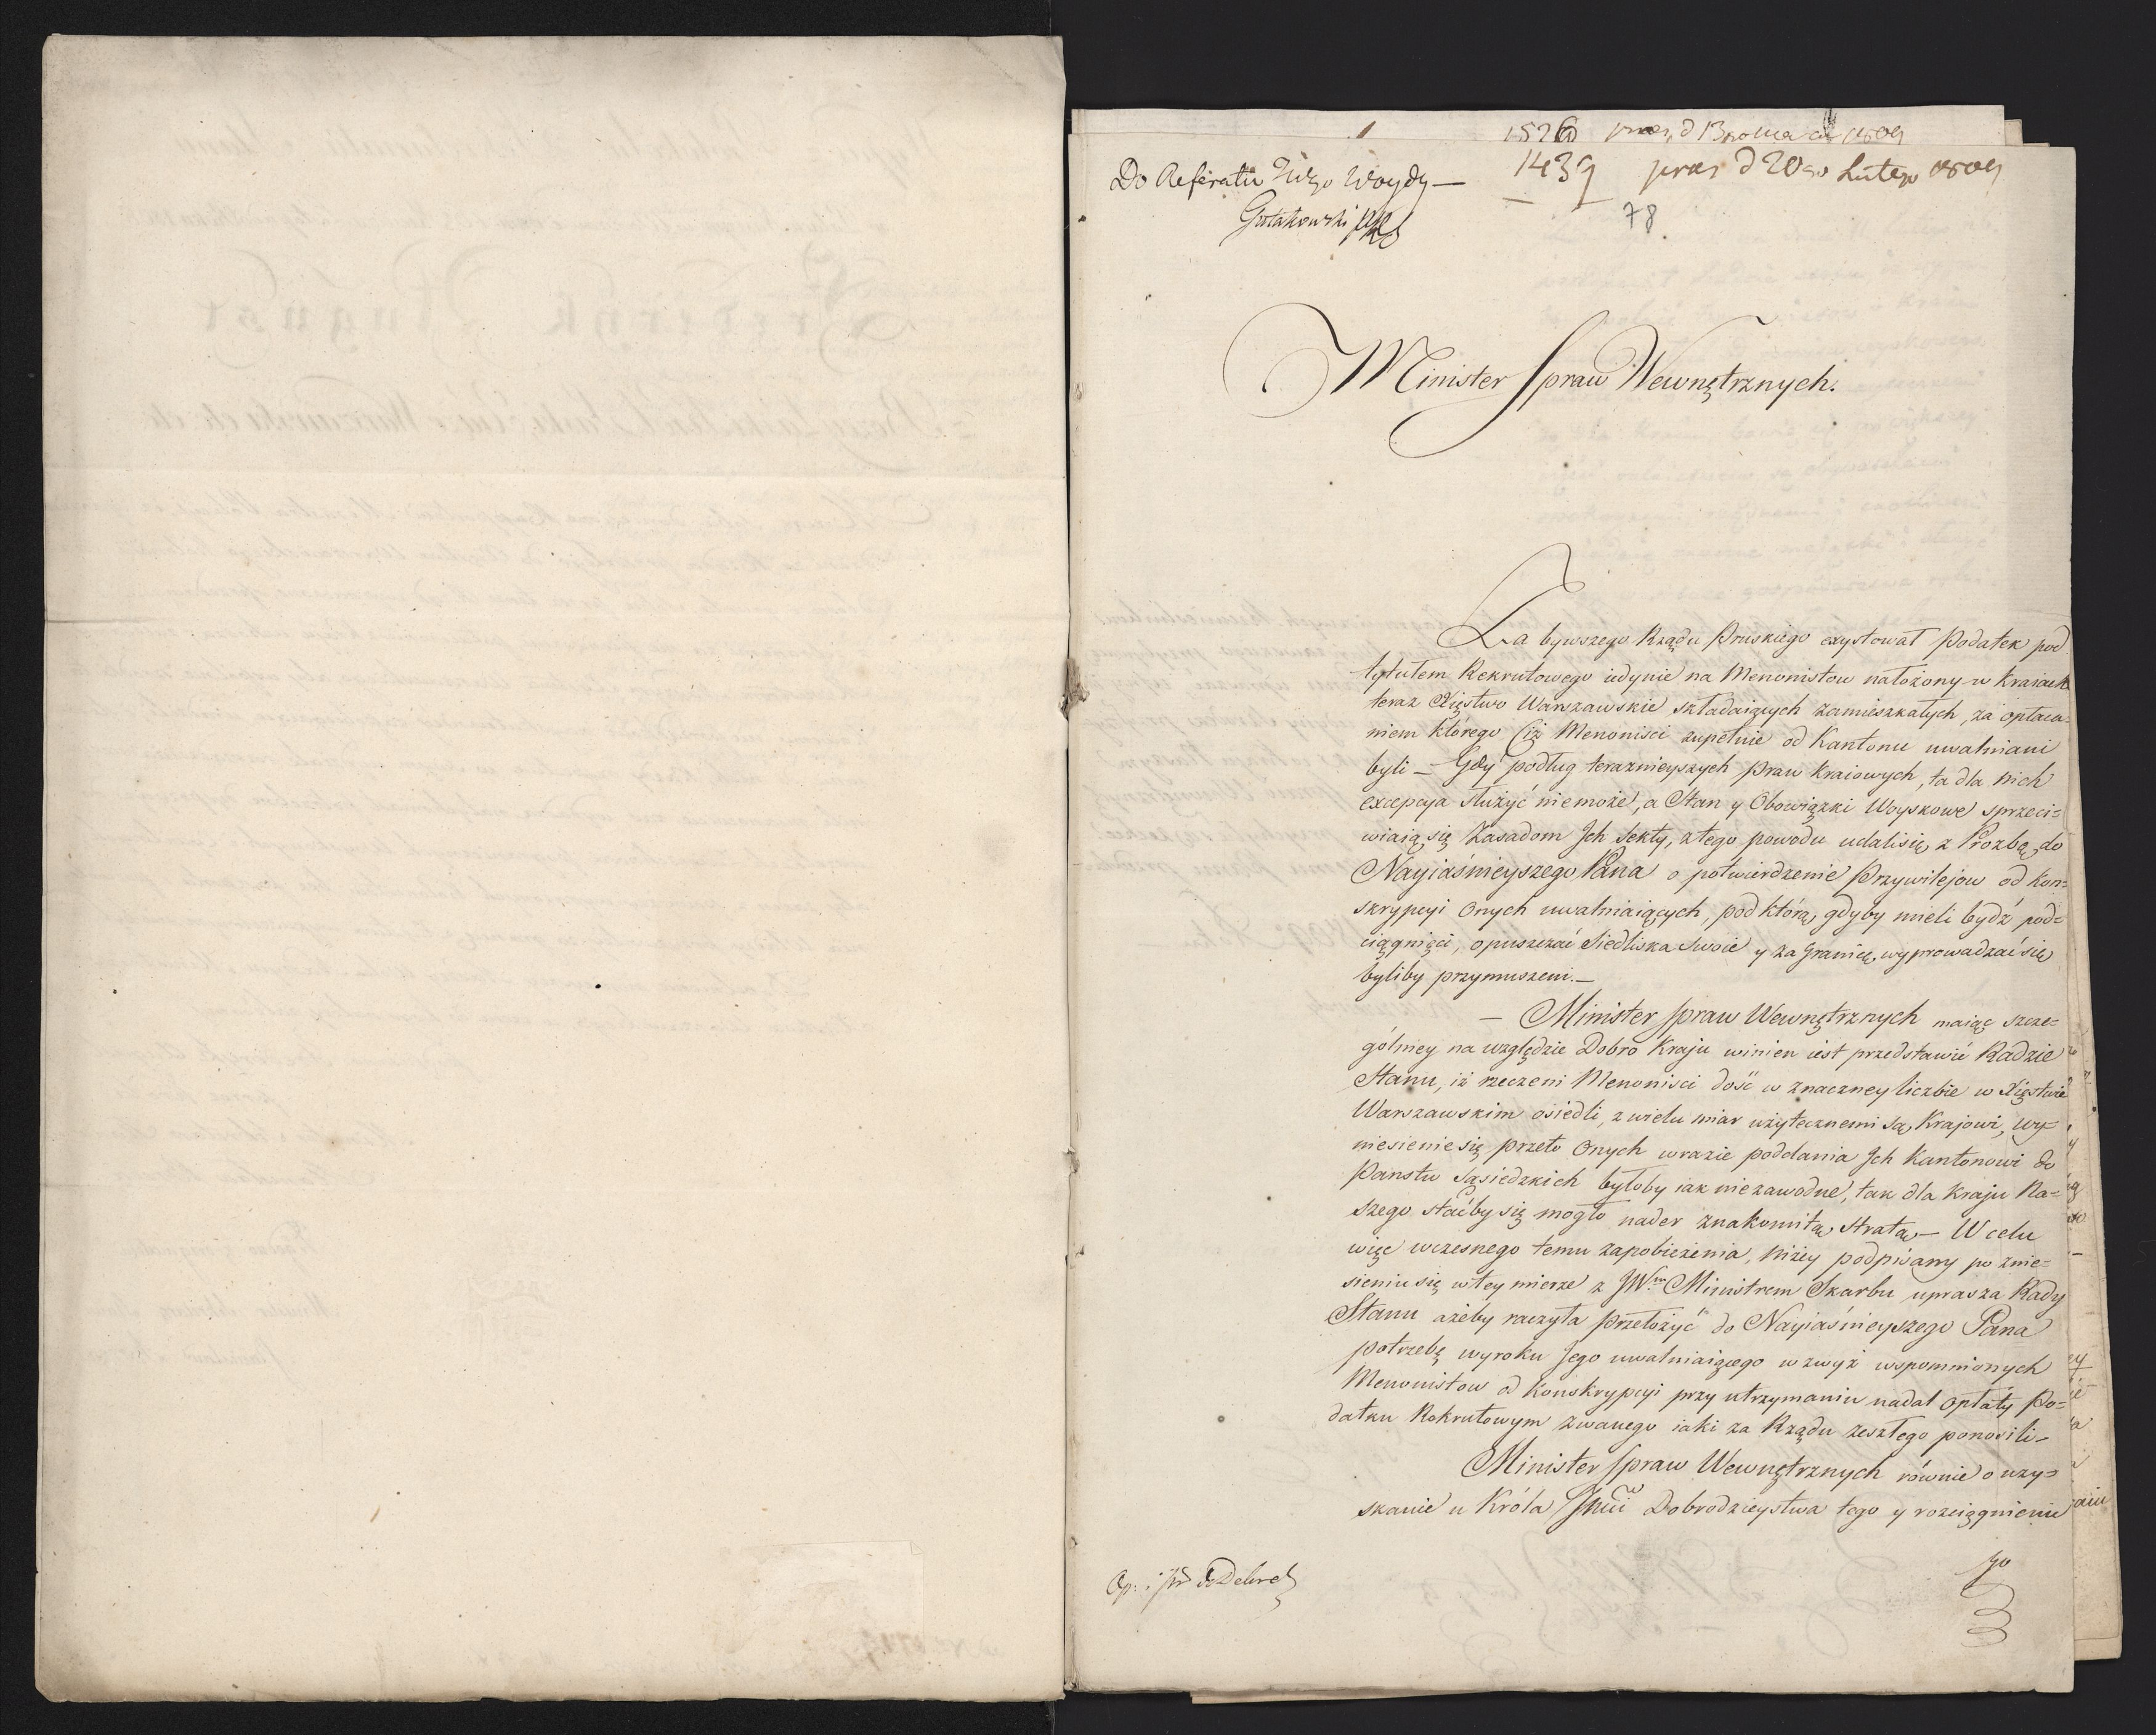 1
1526 pres d 13
1439 pres d 20go Lutego 1809
Do Referatu Woydy —
Gutakowski
78
Minister Spraw Wewnętrznych.
Za bywszego Rządu Pruskiego exystował Podatek pod
tytułem Rekrutowego iedynie na Menonistow nałożony w Kraiach
teraz Xięstwo Warszawskie składaiących zamieszkałych, za opłaca-
niem którego Ciż Menonisci zupełnie od Kantonu uwalniani
byli — Gdy podług teraznieyszych Praw Kraiowych, ta dla nich
excepcya służyć niemoże, a Stan y Obowiązki Woyskowe sprzeci=
wiaią się Zasadom Ich Sekty, ztego powodu udalisię z Prozbą do
Nayiaśnieyszego Pana o potwierdzenie Przywilejow od Kon=
skrypcyi Onych uwalniaiących, pod którą, gdyby mieli bydź pod=
ciągnięci, opuszczać Siedliska Swoie y za Granicę wyprowadzać się
byliby przymuszeni. —
— Minister Spraw Wewnętrznych maiąc szcze=
gólniey na względzie Dobro Kraju winien iest przedstawić Radzie
Stanu, iż rzeczeni Menonisci dość w znaczney liczbie w Xięstwie
Warszawskim osiedli, z wielu miar użytecznemi są Krajowi, wy=
niesienie się przeto Onych wrazie poddania Ich Kantonowi do
Panstw Sąsiedzkich byłoby iak niezawodne, tak dla Kraju Na=
szego staćby się mogło nader znakomitą Stratą — W celu
więc wczesnego temu zapobieżenia, niżey podpisany po znie=
sieniu się w tey mierze z JWm Ministrem Skarbu uprasza Rady
Stanu ażeby raczyła przełożyć do Nayiaśnieyszego Pana
potrzebę wyroku Jego uwalniaiącego wzwyż wspomnionych
Menonistow od Konskrypcyi przy utrzymaniu nadal opłaty Po=
datku Rekrutowym zwanego iaki za Rządu zeszłego ponosili —
Minister Spraw Wewnętrznych równie o uzy=
skanie u Króla Jmci Dobrodzieystwa tego y rozciągnieniu
go